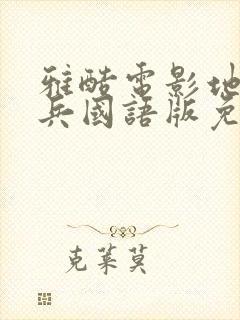 雅酷電影地
兵國語版免
克莱莫